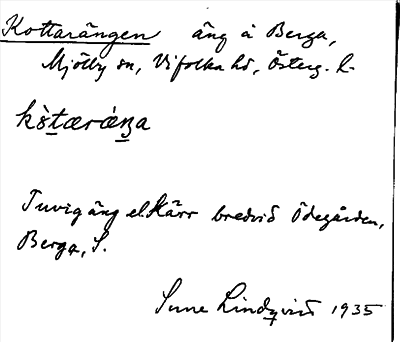 Kottarängen äng å Berga,
Mjölby sn, Vifolka hd, Österg. l.
kòtærǽŋa
Tuvig äng el. Kärr bredvid Ödegården,
Berga, S.
Sune Lindqvist 1935